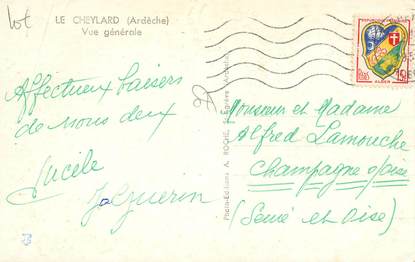 lot
LE CHEYLARD (Ardèche)
Vue générale
Affectueux baisers
de nous deux
Lucile
Photo-Editions A. ROCHE,
Monsieur et Madame
Alfred Lamouche
Champagne s/oise
(Seine et Oise)
ALGER